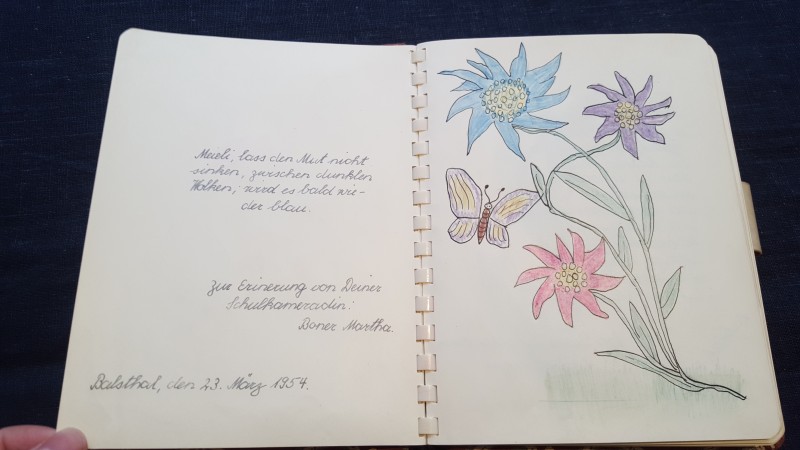 Meieli, lass den Mut nicht
sinken, zwischen dunklen
Wolken, wird es bald wie-
der blau.
zur Erinerung von Deiner
Schulkameradin:
Boner Martha.
Balsthal, den 23. März 1954.